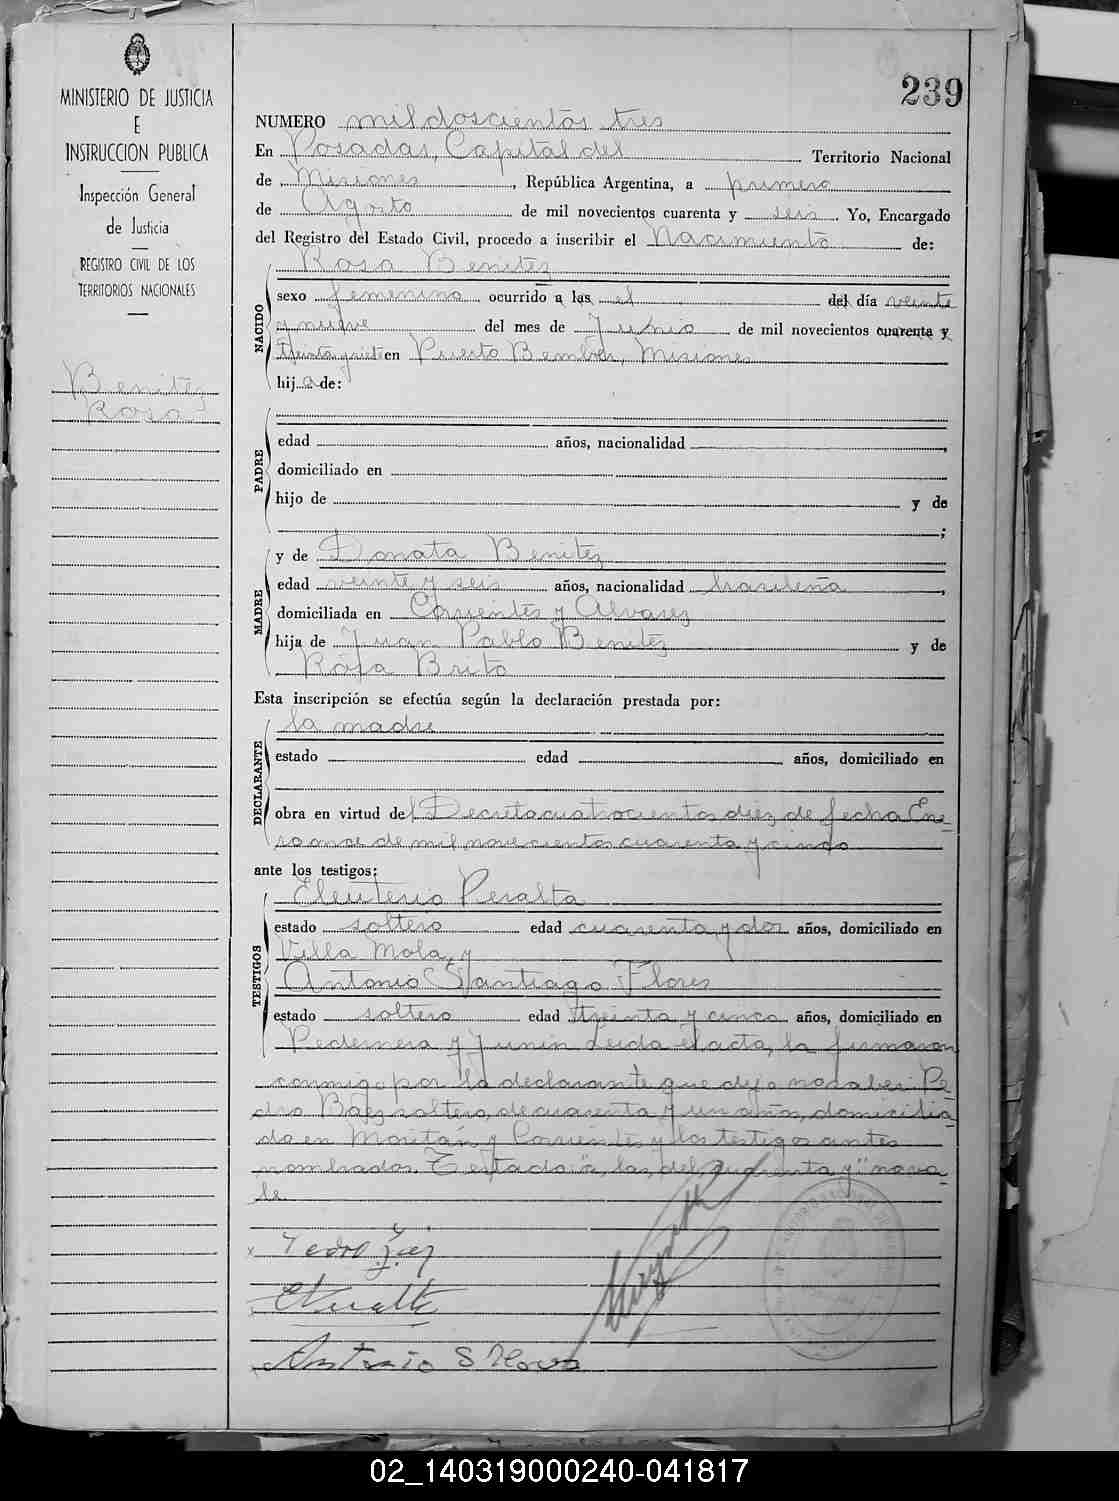 MINISTERIO DE JUSTICIA
E
INSTRUCCION PUBLICA
Inspección General
de Justicia
REGISTRO CIVIL DE LOS
TERRITORIOS NACIONALES
Benitez
Rosa
239
NUMERO mil doscientos tres
En Posadas, Capital del Territorio Nacional
de Misiones, República Argentina, a primero
de Agosto de mil novecientos cuarenta y seis. Yo, Encargado
del Registro del Estado Civil, procedo a inscribir el Nacimiento de:
Rosa Benitez
NACIDO
sexo femenino ocurrido a las el del día veinte
y nueve del mes de Junio de mil novecientos cuarenta y
treinta y siete en Puerto Bemberg, Misiones
hija de:
PADRE
edad años, nacionalidad ,
domiciliado en
hijo de y de
;
MADRE
y de Donata Benitez
edad veinte y seis años, nacionalidad brasileña,
domiciliada en Corrientes y Alvarez
hija de Juan Pablo Benitez y de
Rosa Brito
Esta inscripción se efectúa según la declaración prestada por:
DECLARANTE
la madre
estado edad años, domiciliado en
obra en virtud del Decreto cuatrocientos diez de fecha Ene-
ro once de mil novecientos cuarenta y cinco
ante los testigos:
TESTIGOS
Eleuterio Peralta
estado soltero edad cuarenta y dos años, domiciliado en
Villa Mola, y
Antonio Santiago Flores
estado soltero edad treinta y cinco años, domiciliado en
Pedernera y Junin Leida el acta, la firmaron
conmigo por la declarante que dijo no saber Pe-
dro Báez soltero, de cuarenta y un años, domicilia-
do en Moritán y Corrientes y los testigos antes
nombrados. Testado: "a, las, del, cuarenta y" no va-
le.
Pedro Báez
EPeralta
Antonio S Flores
02_140319000240-041817